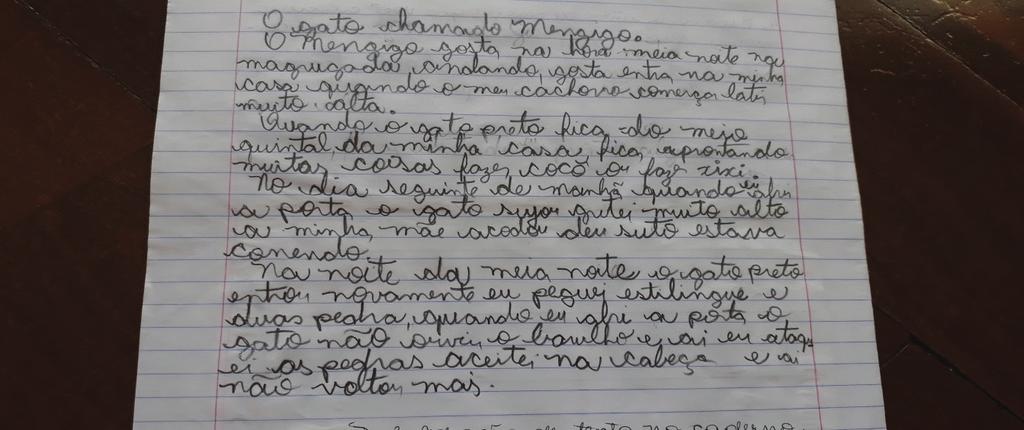 O gato chamado Mengigo.
O Mengigo gosta na hora meia nate na
maqugada, andando, gosta entra na minha
casa quando o meu cachorro começa later
muito alta.
Quando o gato preto fica do meio
quintal da minha casa, fica aprontando
muitas coisas fazer cocô ou fazer xixi.
No dia seguinte de manhã quando eu abri
a porta o gato sujou gritei muito alto
a minha mãe acodou deu suto estava
conendo.
Na noite da meia noite o gato preto
entrou novamente eu peguei estilingue e
duas pegha, quando eu abri a porta o
gato não ouviu o barulho e ai eu ataqu
ei as peghas aceitei na cabeça e ai
não voltou mais.
texto no caderno.